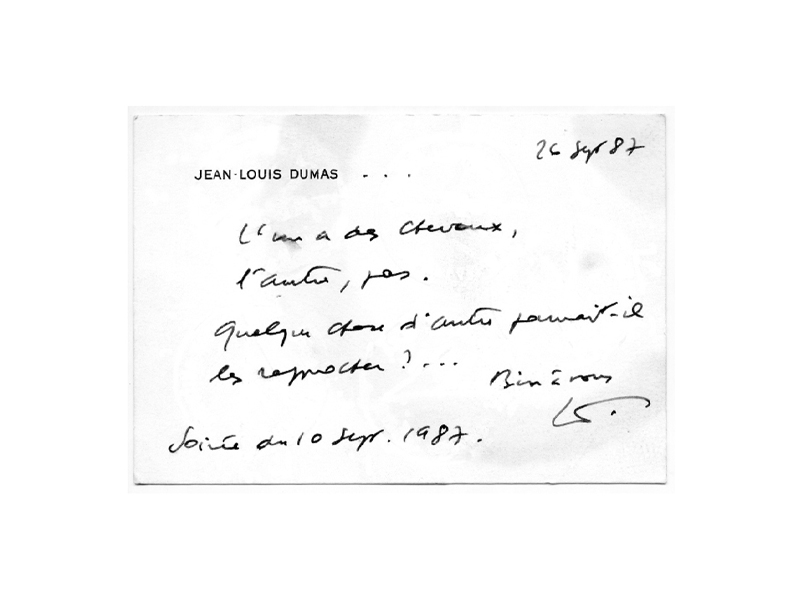 26 Sept 87
JEAN-LOUIS DUMAS . . .
L'un a des chevaux,
l'autre, pas.
Quelque chose d'autre pourrait-il
les rapprocher ?...
Bien à vous
Soirée du 10 Sept. 1987.